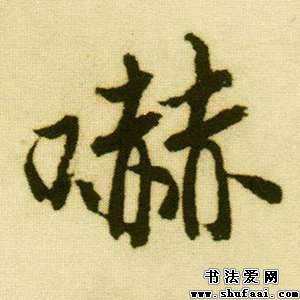 嚇
书法爱网
www.shufaai.com